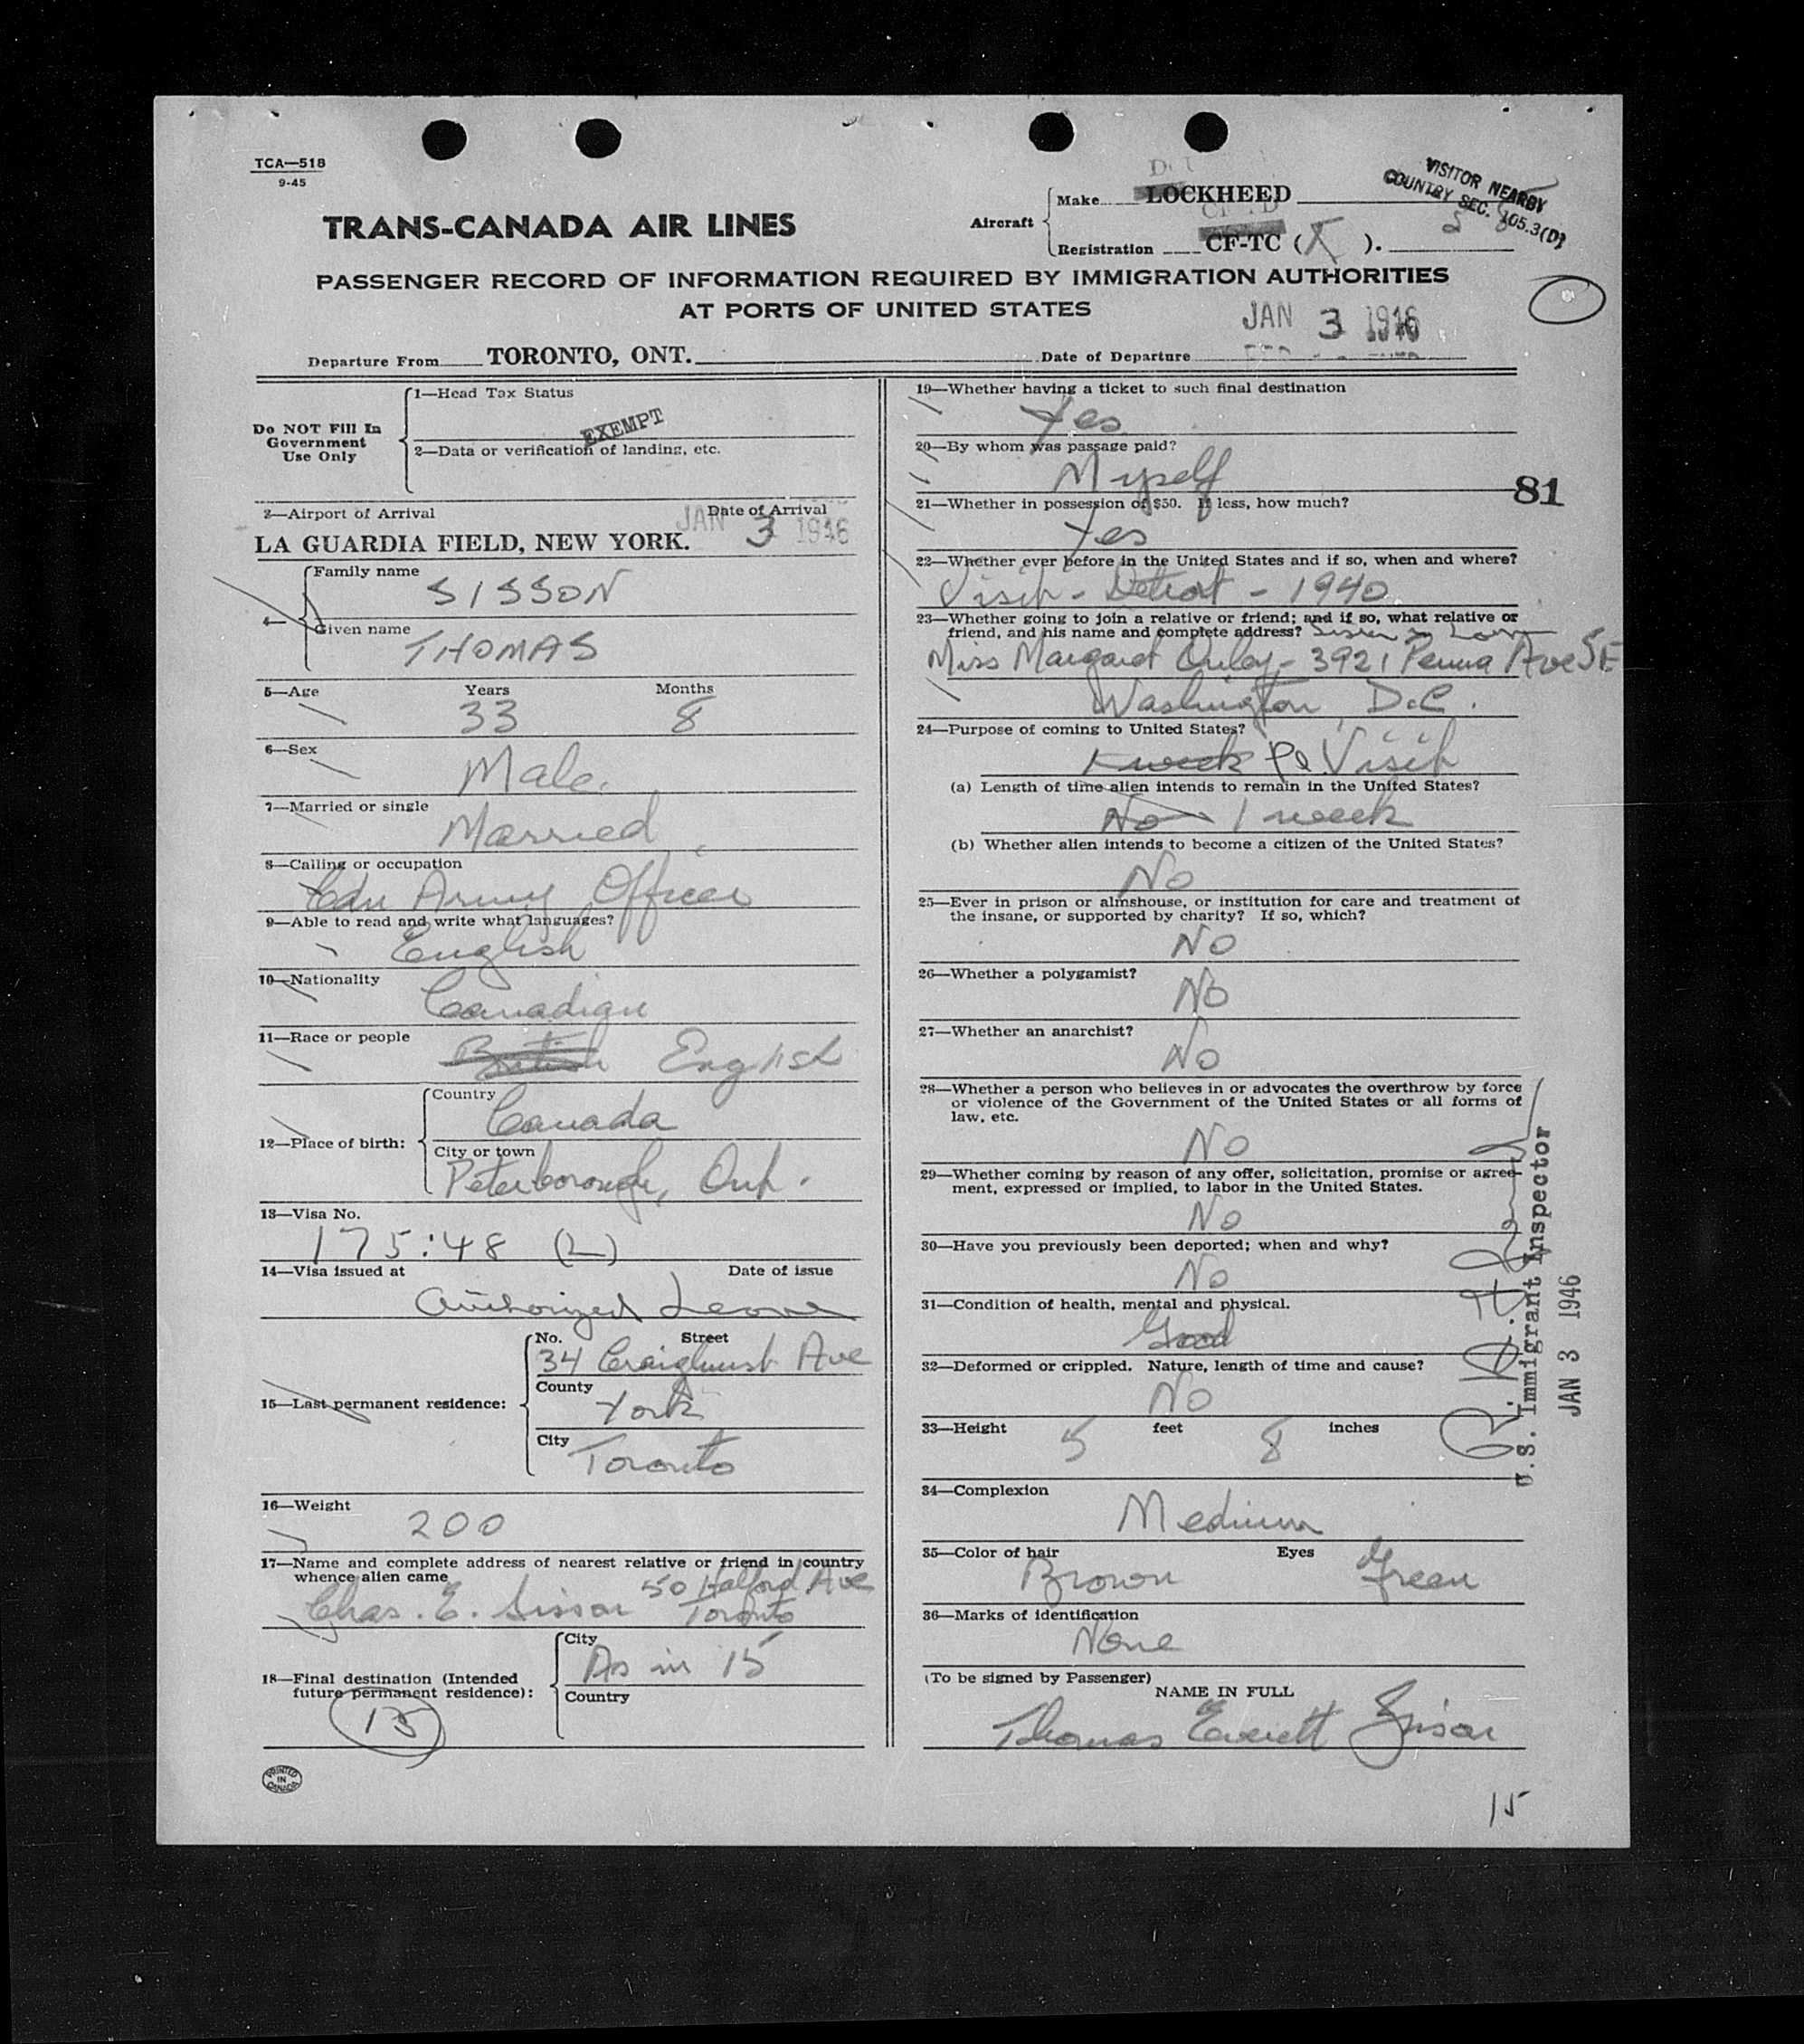 TCA—518
9-45
VISITOR NEARBY
COUNTRY SEC. 105.3(D)
TRANS-CANADA AIR LINES
Aircraft
Make LOCKHEED
Registration CF-TC (X).
PASSENGER RECORD OF INFORMATION REQUIRED BY IMMIGRATION AUTHORITIES
AT PORTS OF UNITED STATES
JAN 3 1946
Departure From TORONTO, ONT. Date of Departure
Do NOT Fill In
Government
Use Only
1—Head Tax Status
EXEMPT
2—Data or verification of landing, etc.
3—Airport of Arrival Date of Arrival
LA GUARDIA FIELD, NEW YORK. JAN 3 1946
4—
Family name
SISSON
Given name
THOMAS
5—Age Years Months
33 8
6—Sex
Male.
7—Married or single
Married
8—Calling or occupation
Cdn Army Officer
9—Able to read and write what languages?
English
10—Nationality
Canadian
11—Race or people
British English
12—Place of birth:
Country
Canada
City or town
Peterborough, Ont.
13—Visa No.
175:48 (L)
14—Visa issued at Date of issue
Authorized Leave
15—Last permanent residence:
No. Street
34 Craighurst Ave
County
York
City
Toronto
16—Weight
200
17—Name and complete address of nearest relative or friend in country
whence alien came
Chas. E. Sisson 50 Halford Ave
Toronto
18—Final destination (Intended
future permanent residence):
City
As in 15
Country
15
PRINTED
IN
CANADA
19—Whether having a ticket to such final destination
Yes
20—By whom was passage paid?
Myself
81
21—Whether in possession of $50. If less, how much?
Yes
22—Whether ever before in the United States and if so, when and where?
Visit - Detroit - 1940
23—Whether going to join a relative or friend; and if so, what relative or
friend, and his name and complete address? Sister in Law
Miss Margaret - 3921 Penna Ave SE
Washington, D.C.
24—Purpose of coming to United States?
1 week Visit
(a) Length of time alien intends to remain in the United States?
No 1 week
(b) Whether alien intends to become a citizen of the United States?
No
25—Ever in prison or almshouse, or institution for care and treatment of
the insane, or supported by charity? If so, which?
No
26—Whether a polygamist?
No
27—Whether an anarchist?
No
28—Whether a person who believes in or advocates the overthrow by force
or violence of the Government of the United States or all forms of
law, etc.
No
29—Whether coming by reason of any offer, solicitation, promise or agree-
ment, expressed or implied, to labor in the United States.
No
30—Have you previously been deported; when and why?
No
31—Condition of health, mental and physical.
Good
32—Deformed or crippled. Nature, length of time and cause?
No
33—Height 5 feet 8 inches
34—Complexion
Medium
35—Color of hair Eyes
Brown Green
36—Marks of identification
None
(To be signed by Passenger)
NAME IN FULL
Thomas Everett Sisson
U.S. Immigrant Inspector
JAN 3 1946
15